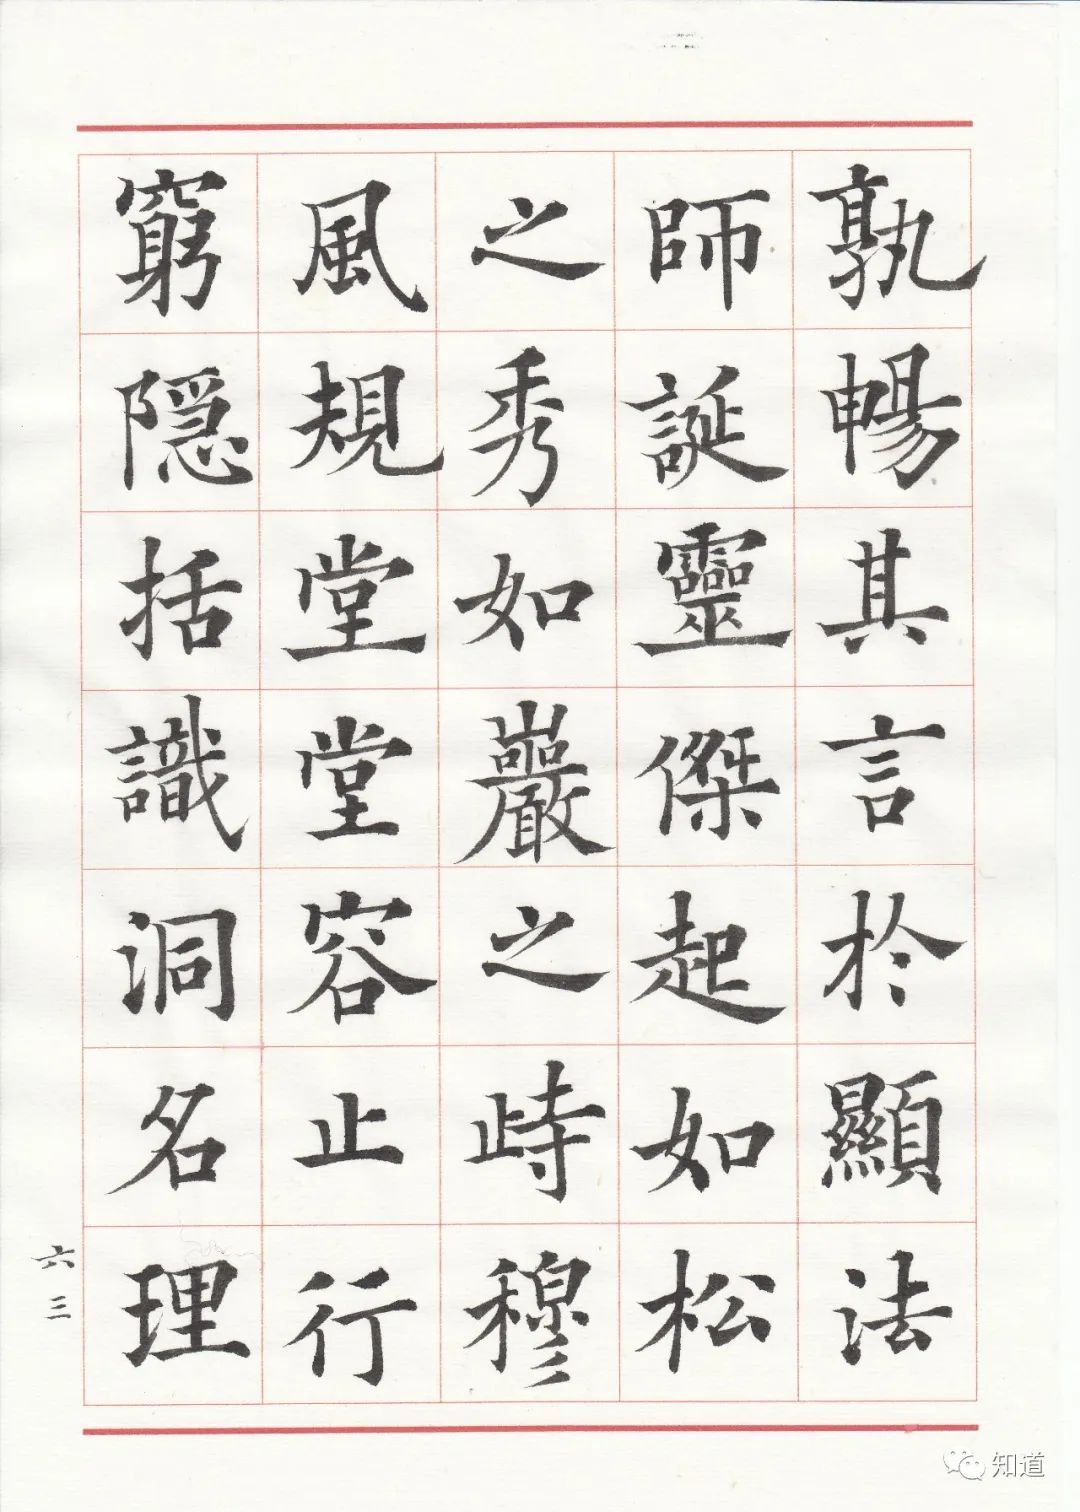 孰暢其言於顯法
師誕靈傑起如松
之秀如巖之峙穆
風規堂堂容止行
窮隱括識洞名理
六三
知道